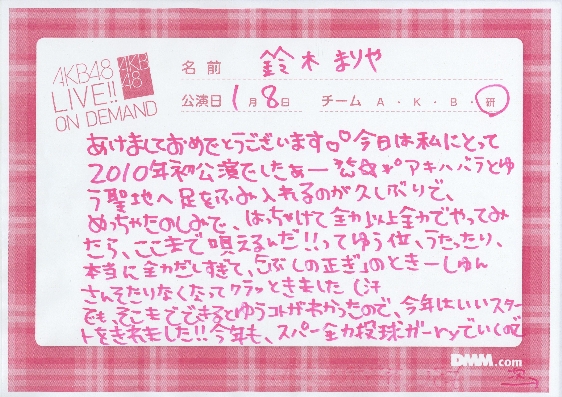 AKB48
LIVE!!
ON DEMAND
AKB
48
名前 鈴木まりや
公演日 1月8日 チーム A・K・B・研
あけましておめでとうございます♡今日は私にとって
2010年初公演でしたぁー アキハバラとゆ
う聖地へ足をふみ入れるのが久しぶりで、
めっちゃたのしみで、はっちゃけて全力以上全力でやってみ
たら、ここまで唄えるんだ!!ってゆう位、うたったり、
本当に全力だしすぎて、「こぶしの正ぎ」のときーしゅん
さんそたりなくなってクラッときました 汗
でも、そこまでできるとゆうコトがわかったので、今年はいいスター
トをきれました!!今年も、スパー全力投球ガーryでいくので
DMM.com